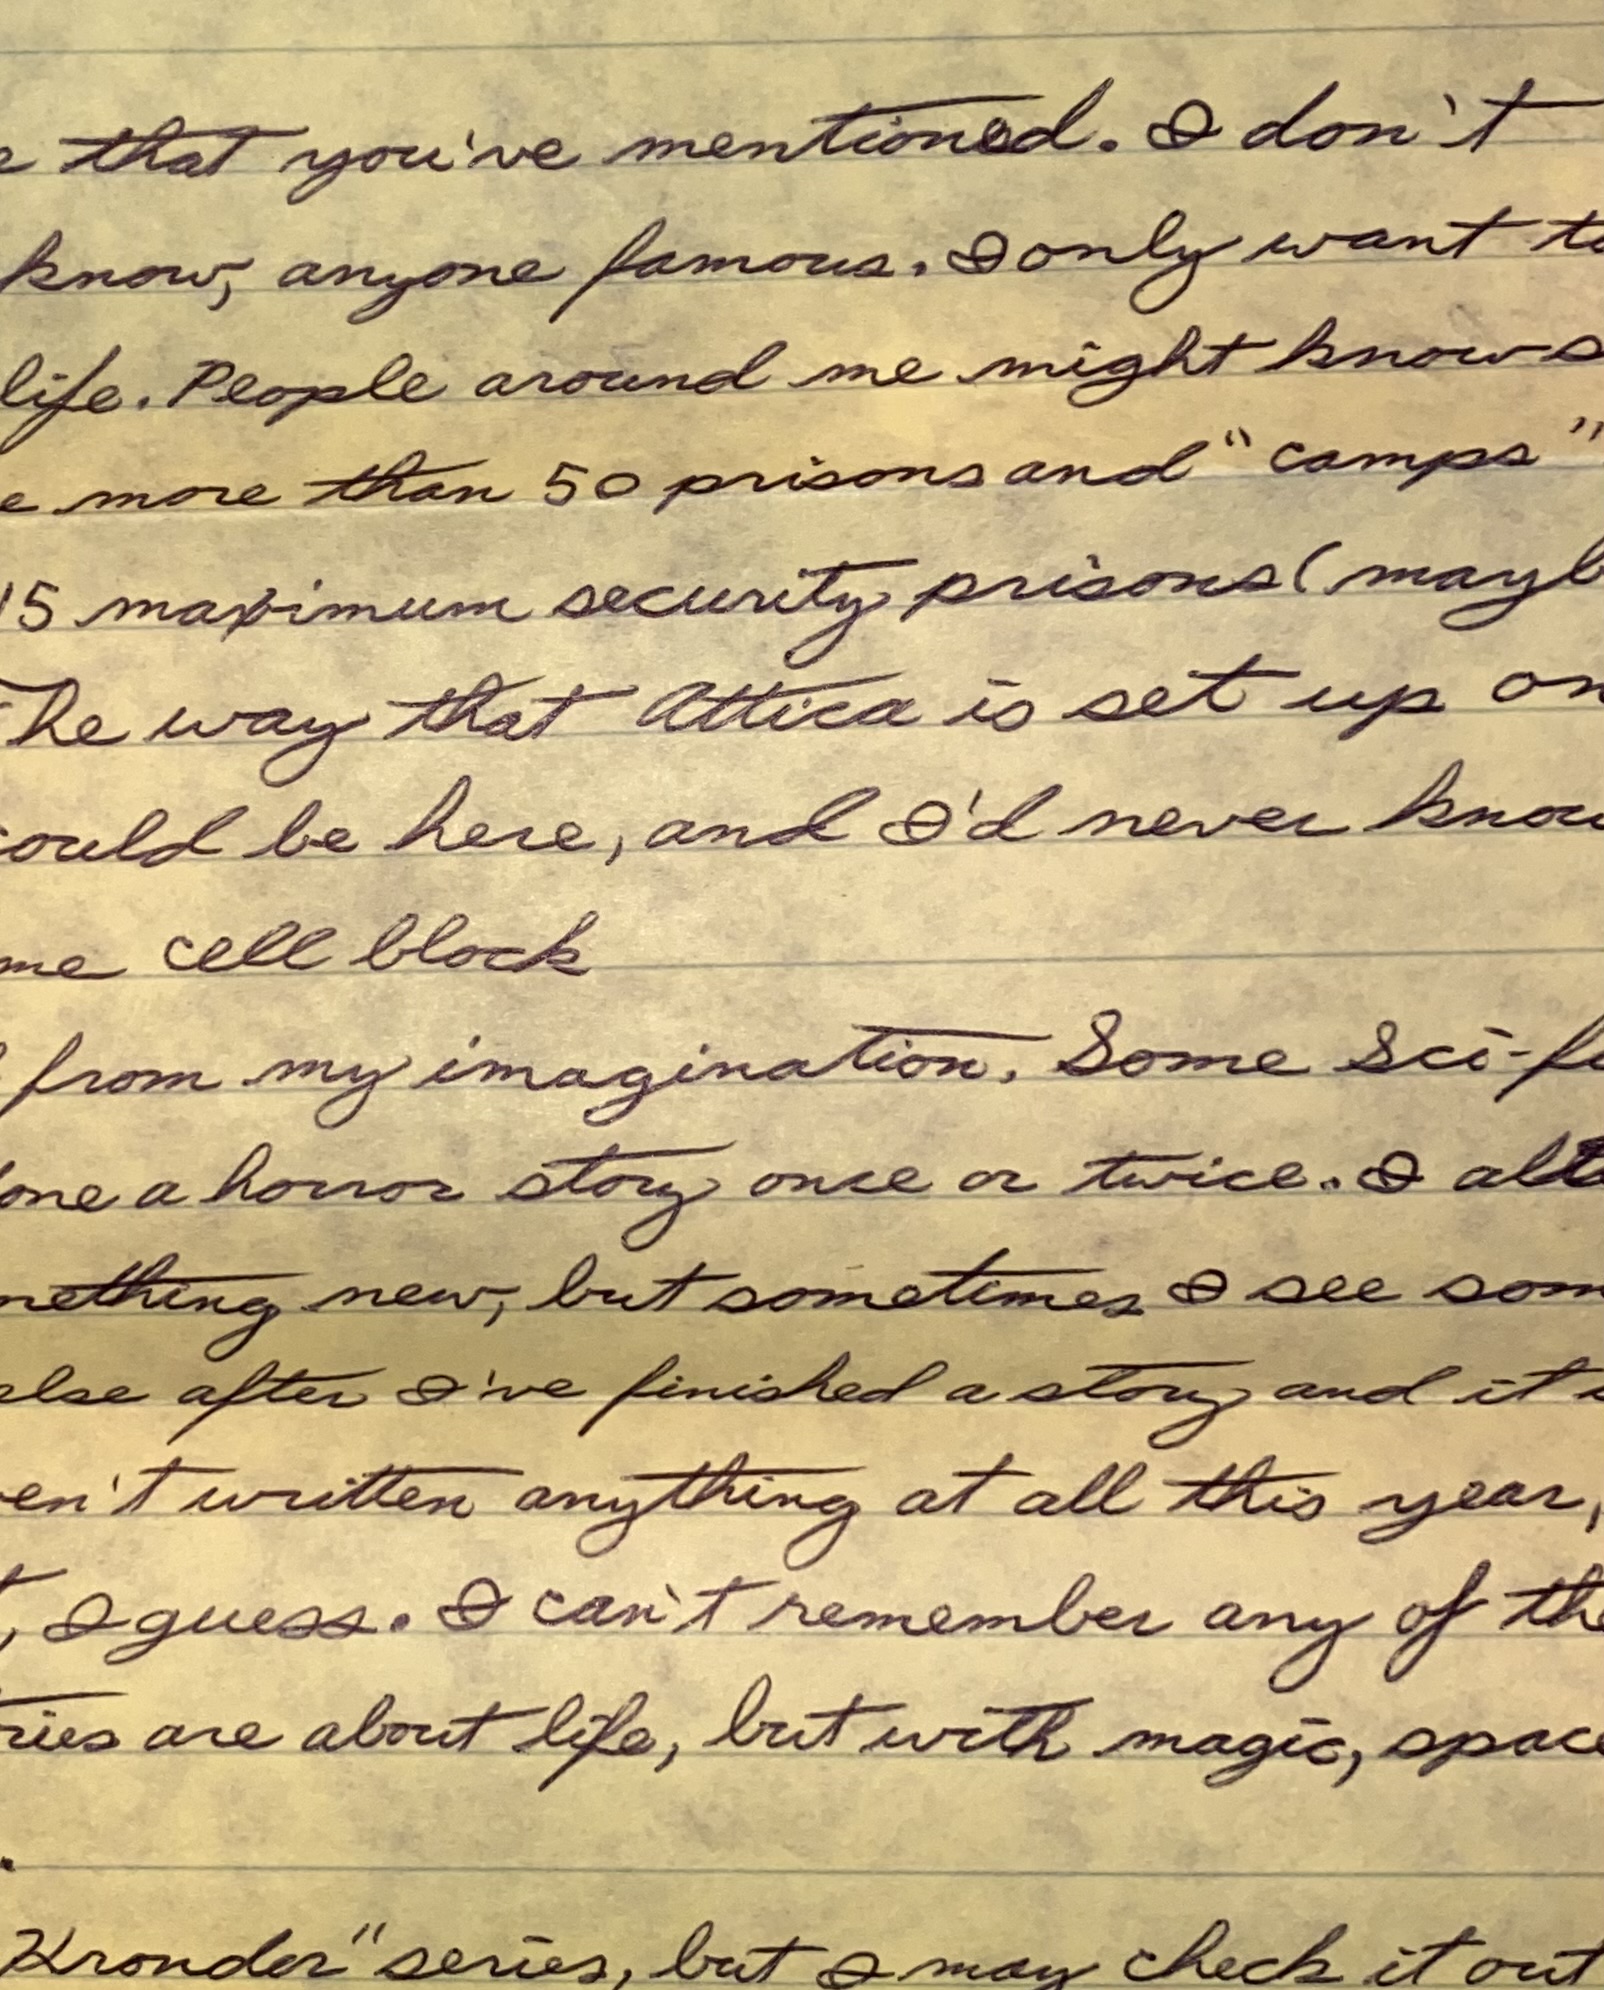 that you've mentioned. I don't
know, anyone famous. I only want to
life. People around me might know s
e more than 50 prisons and "camps"
15 maximum security prisons (mayb
The way that Attica is set up on
could be here, and I'd never know
me cell block
from my imagination. Some Sci-fi
done a horror story once or twice. I
mething new, but sometimes I see som
else after I've finished a story and it
en't written anything at all this year,
t, I guess. I can't remember any of the
ries are about life, but with magic, space
.
Kronder" series, but I may check it out